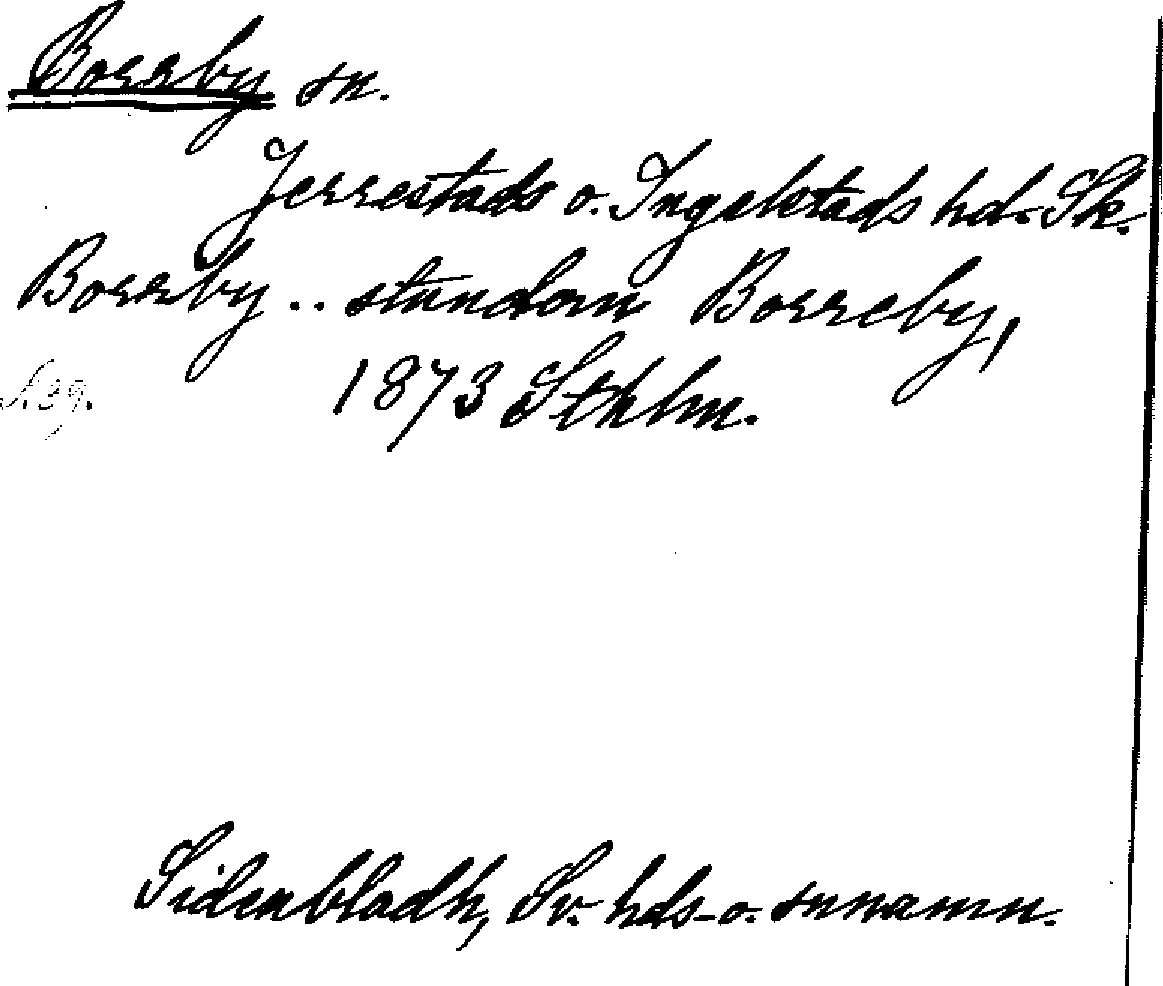 Borrby sn.
Jerrestads o. Ingelstads hd. Sk.
Borrby .. stundom Borreby,
s. 39. 1873 Sthlm.
Sidenbladh, Sv. hds- o. snnamn.